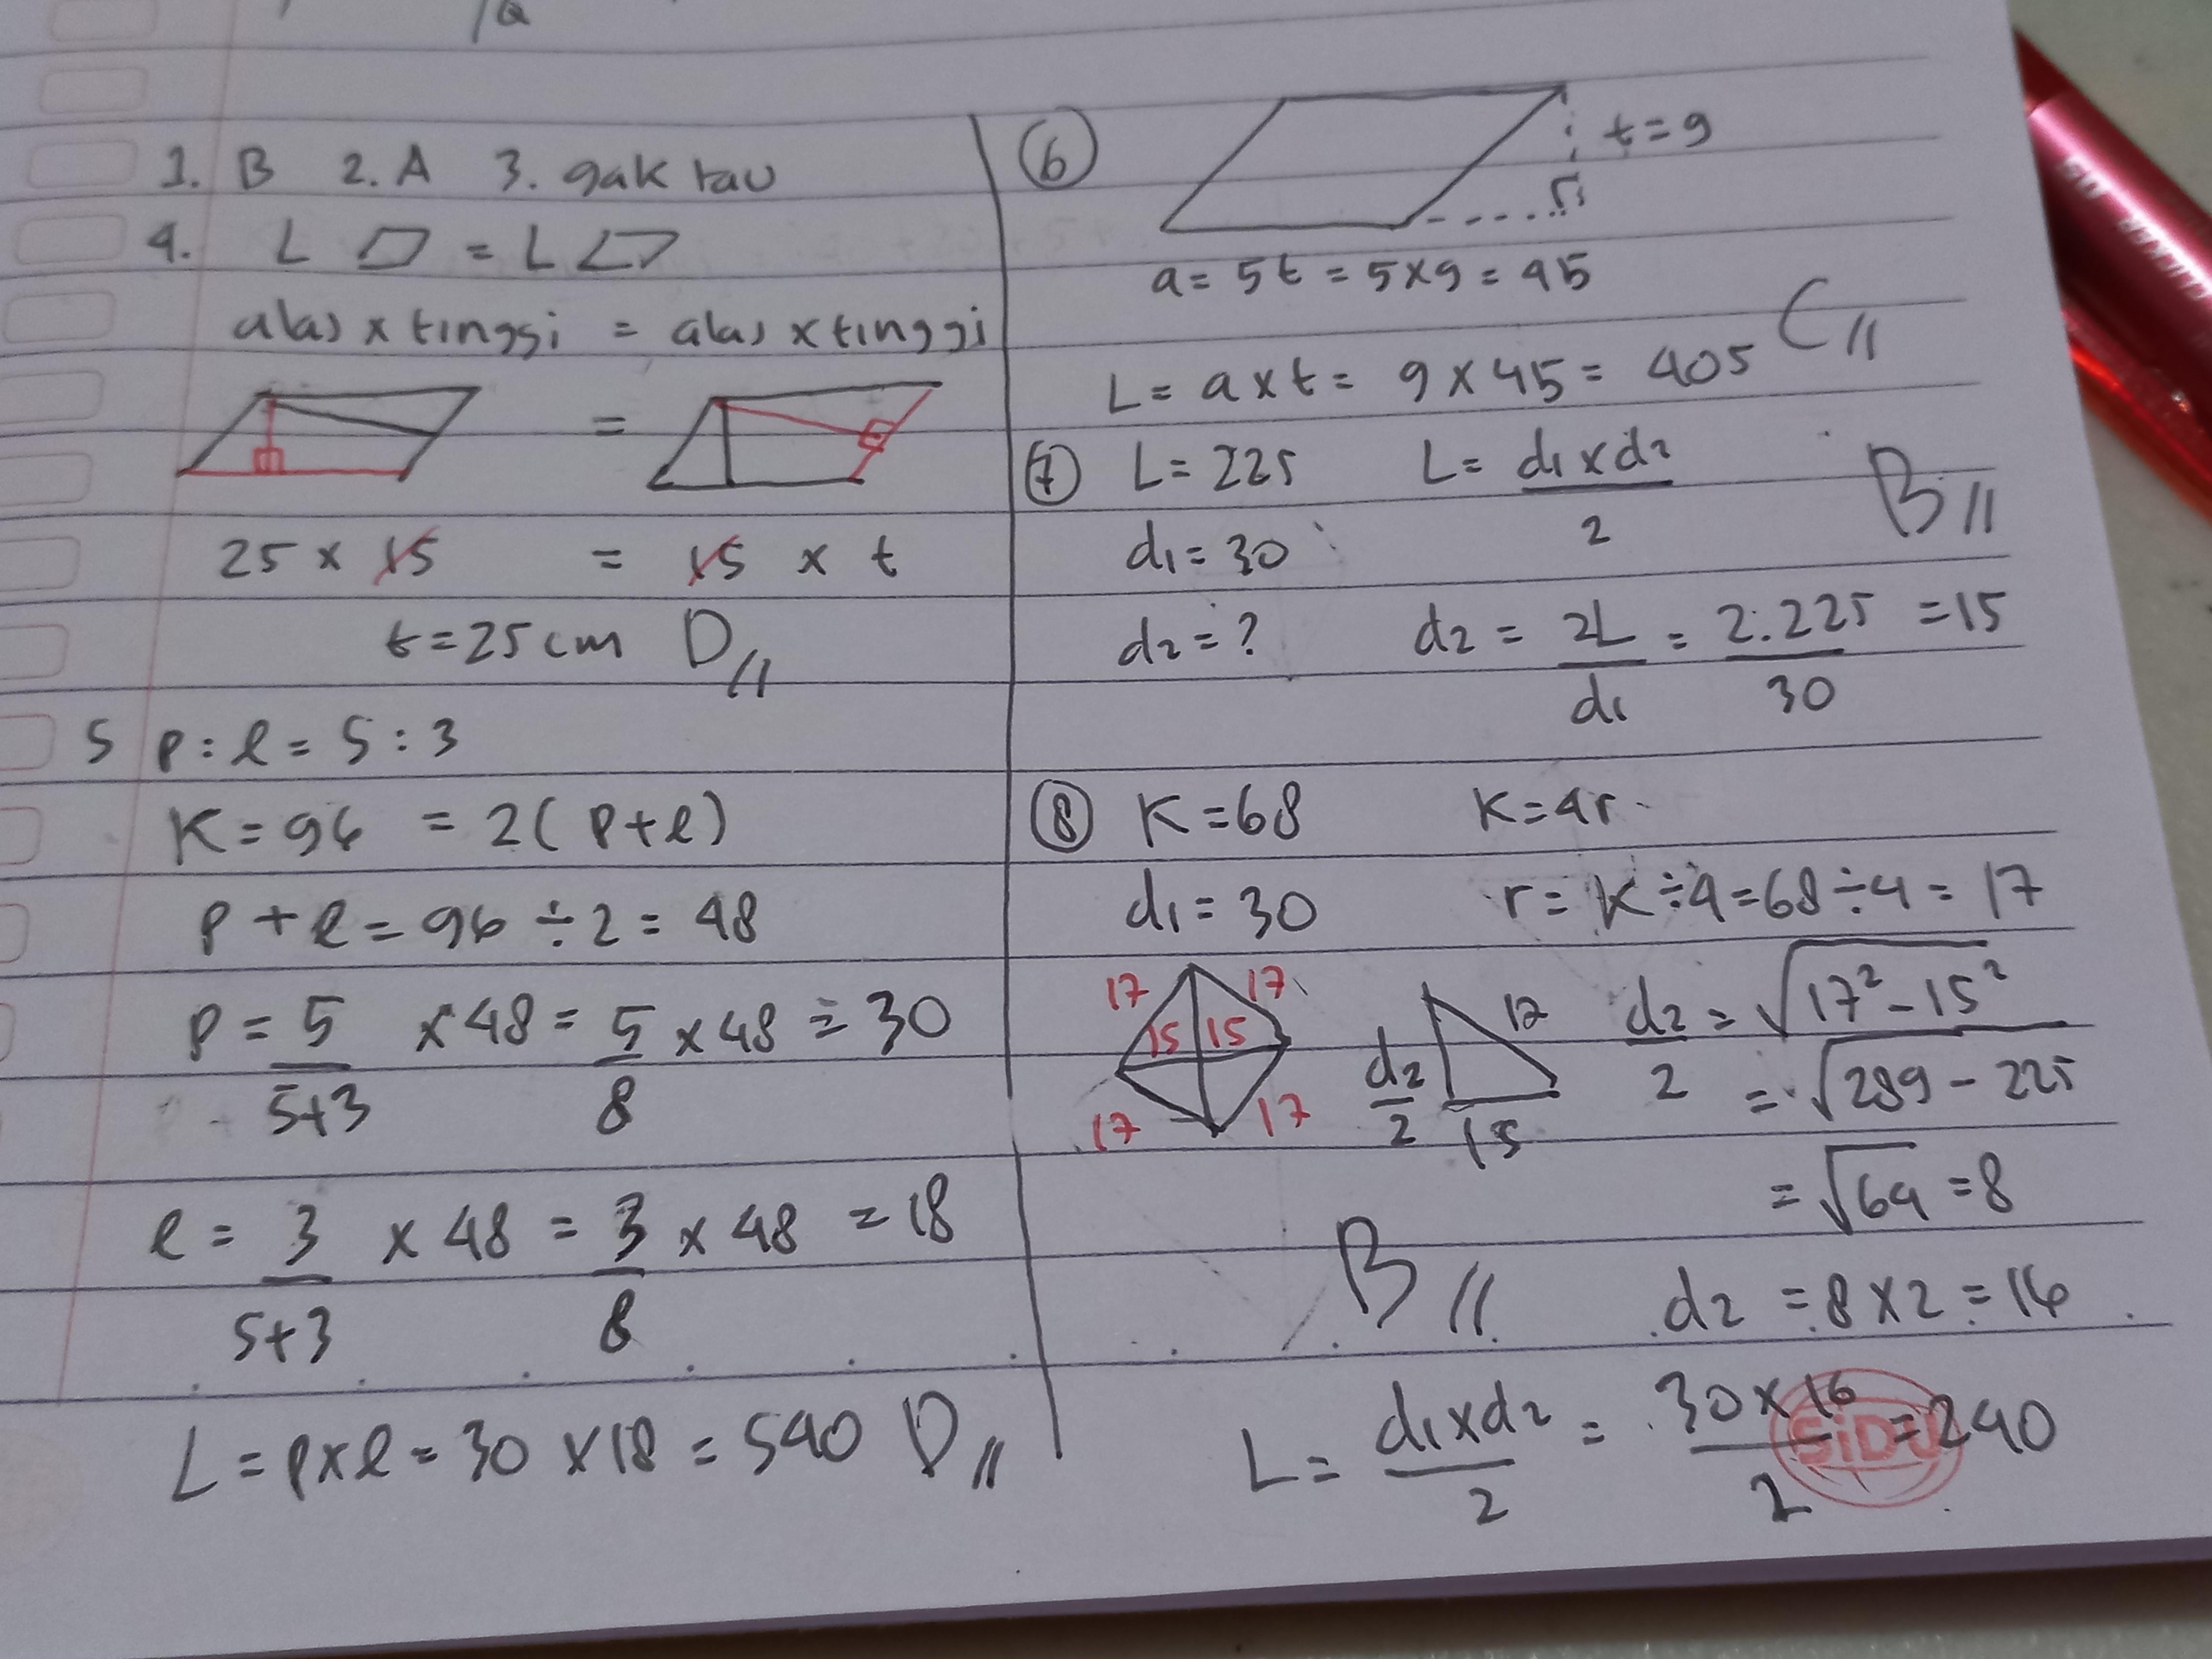 1. B 2. A 3. gak tau
4. L ▱ = L ▱
alas x tinggi = alas x tinggi
=
25 x 15 = 15 x t
t = 25 cm D //
5 p : l = 5 : 3
K = 96 = 2 ( p + l )
p + l = 96 ÷ 2 = 48
p = 5 x 48 = 5 x 48 = 30
5+3 8
l = 3 x 48 = 3 x 48 = 18
5+3 8
L = p x l = 30 x 18 = 540 D //
6 t = 9
a = 5t = 5 x 9 = 45
L = a x t = 9 x 45 = 405 C //
7 L = 225 L = d1 x d2 B //
2
d1 = 30
d2 = ? d2 = 2L = 2.225 = 15
d1 30
8 K = 68 K = 4r
d1 = 30 r = K ÷ 4 = 68 ÷ 4 = 17
17 17 15 15 17 17
17 d2 15
2
d2 = √17² - 15²
2 = √289 - 225
= √64 = 8
B // d2 = 8 x 2 = 16
L = d1 x d2 = 30 x 16 = 240
2 2
SiDU